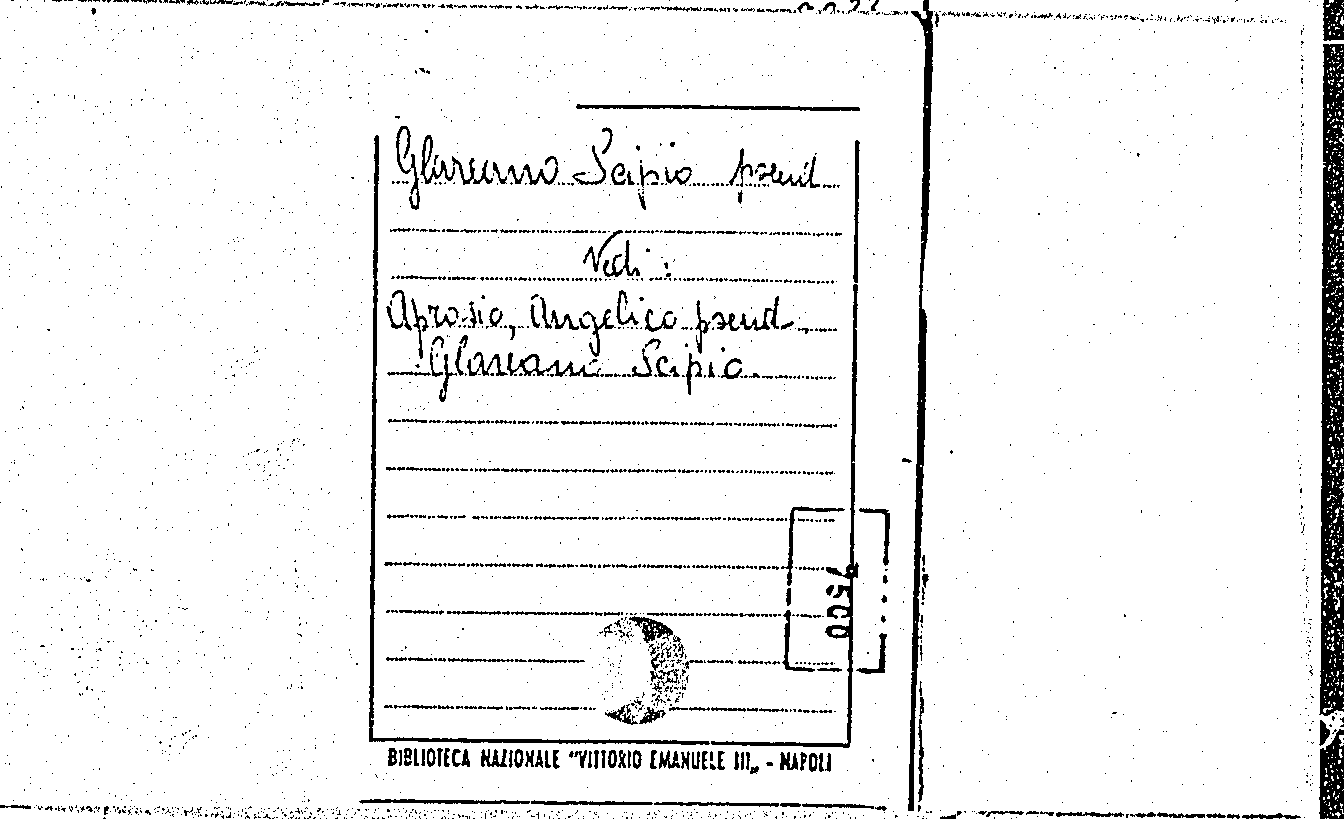 Glareano Scipio pseud
Vedi :
Aprosio, Angelico pseud.
Glareano Scipio.
7500
BIBLIOTECA NAZIONALE "VITTORIO EMANUELE III„ - NAPOLI